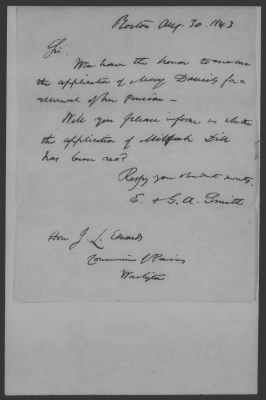 Boston Aug. 30. 1843
Sir.
We have the honor to enclose
the application of Mercy Daniels for a
renewal of her Pension -
Will you please inform us whether
the application of Dill
has been recd?
Respy your obedient servts.
E. & G. A. Smith
Hon J. L. Edwards
Commissr of Pensions
Washington